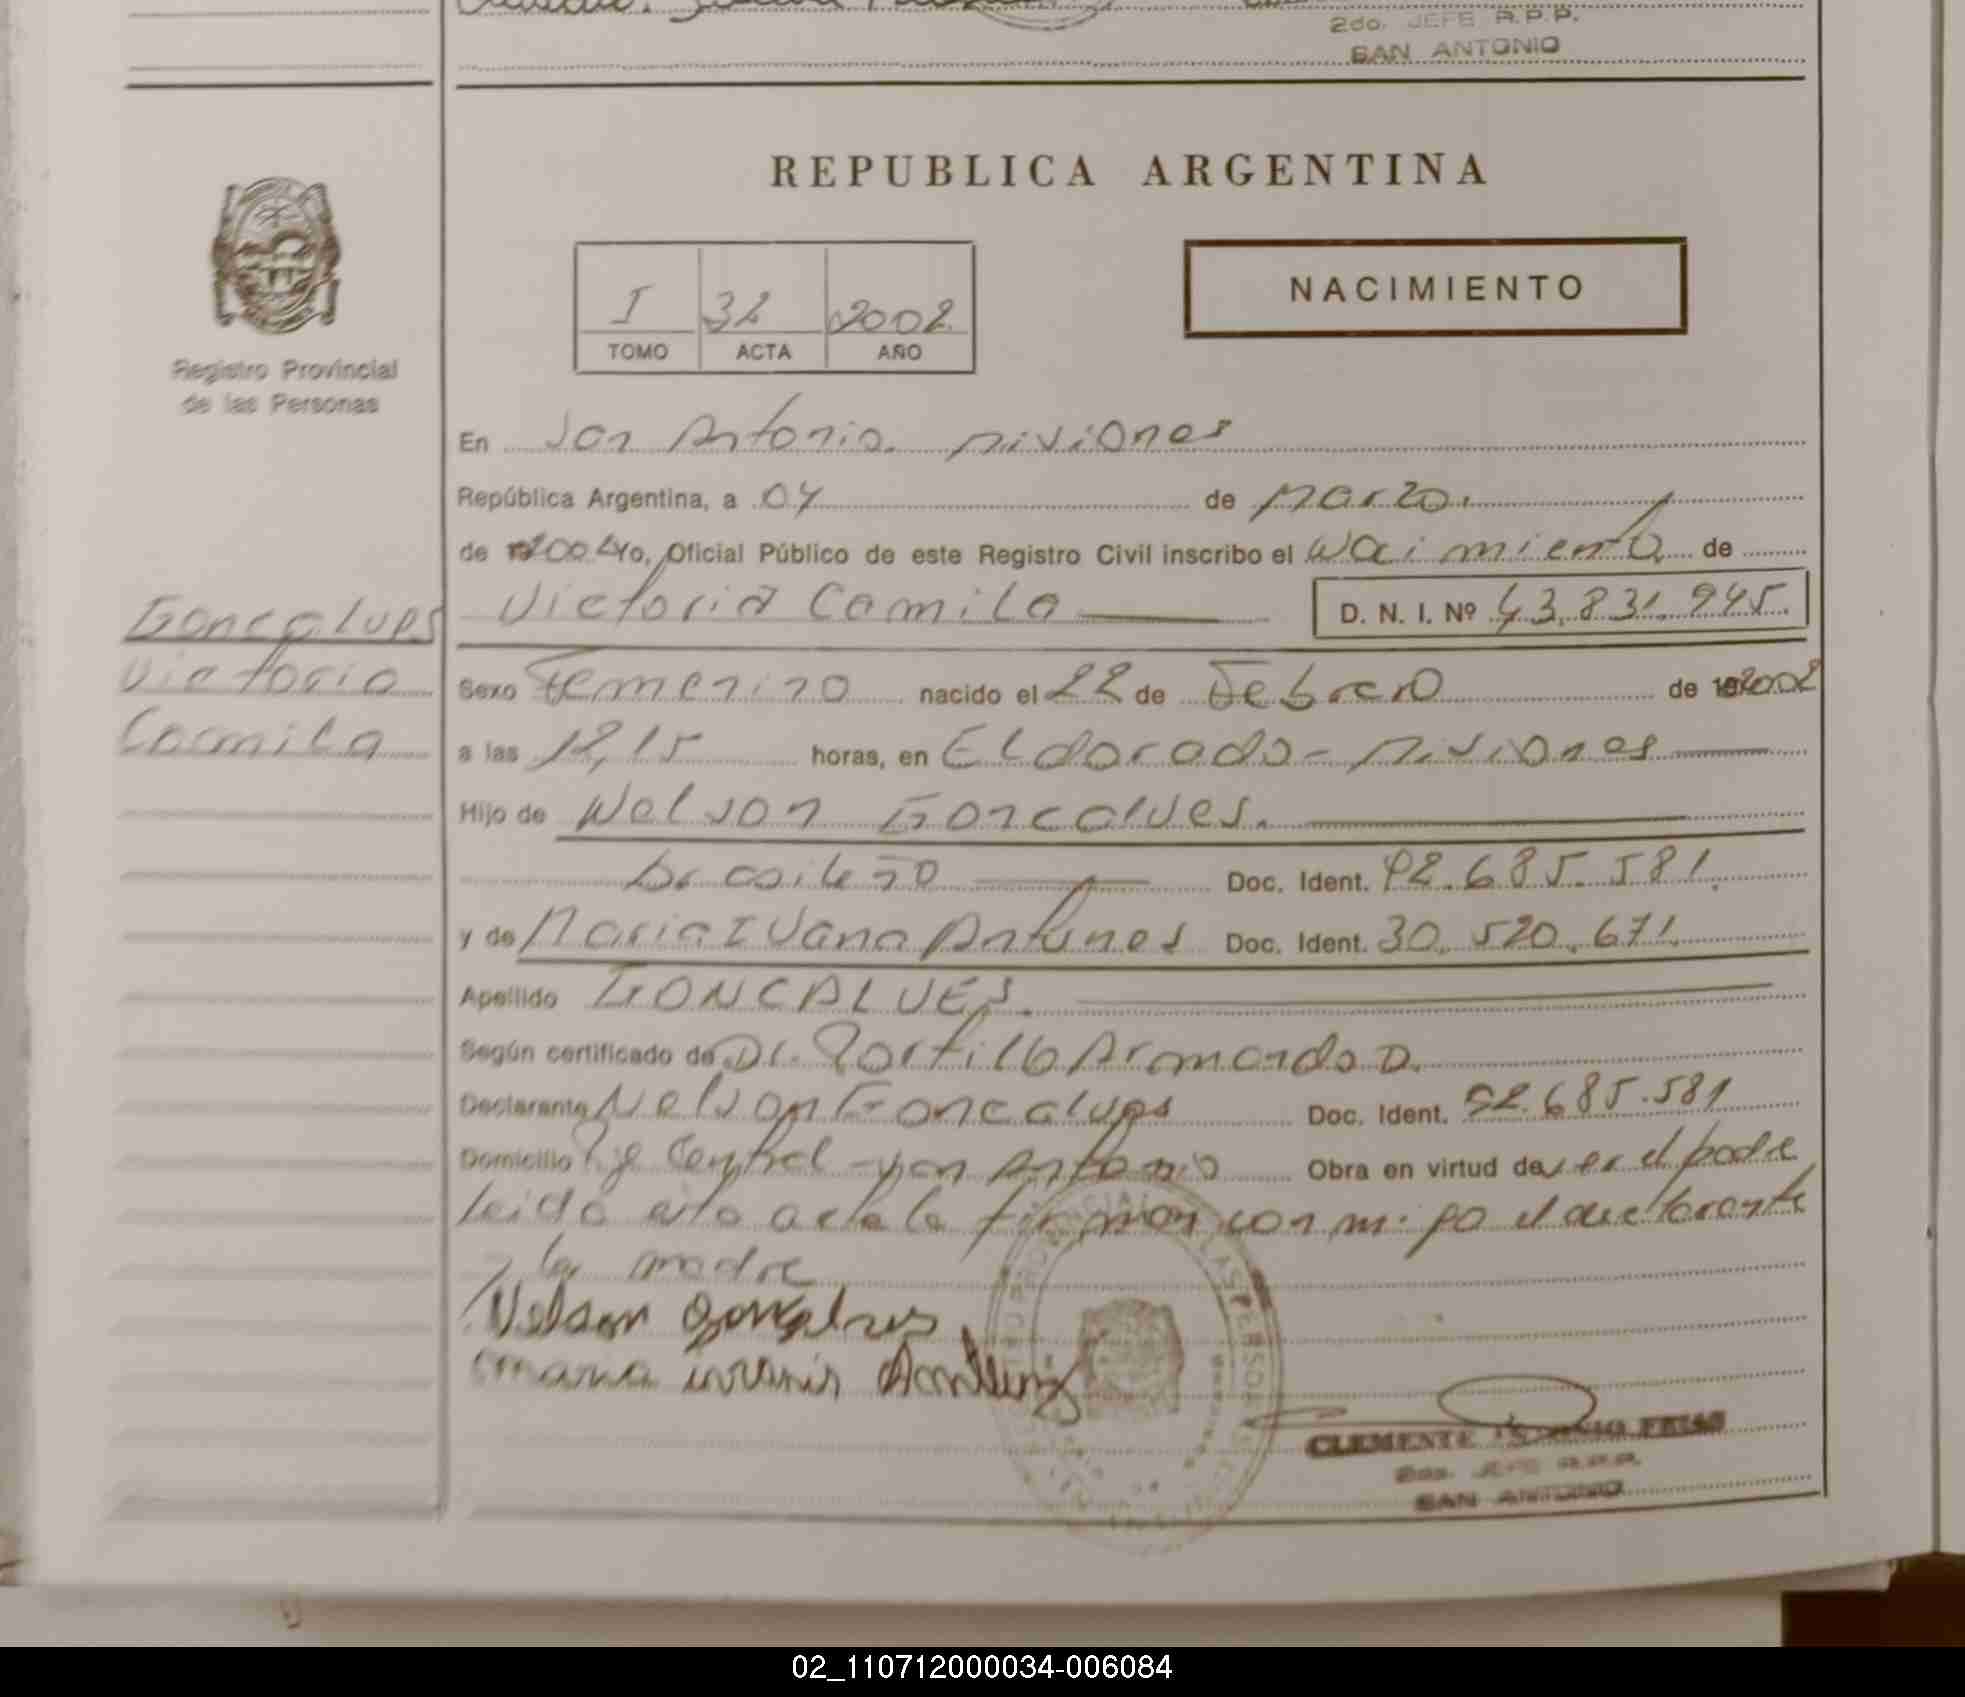 2do. JEFE R.P.P.
SAN ANTONIO
REPUBLICA ARGENTINA
NACIMIENTO
I 32 2002
TOMO ACTA AÑO
Registro Provincial
de las Personas
En San Antonio. Misiones
República Argentina, a 04 de Marzo.
de 2002 Yo, Oficial Público de este Registro Civil inscribo el Nacimiento de
Victoria Camila D. N. I. Nº 43.831.945.
Goncalves
Victoria
Camila
Sexo Femenino nacido el 22 de Febrero de 192002
a las 12,15 horas, en Eldorado - Misiones
Hijo de Nelson Goncalves.
brasileño Doc. Ident. 92.685.581.
y de Maria Ivana Antunes Doc. Ident. 30.520.671.
Apellido GONCALVES.
Según certificado de Dr. Portillo Armando D.
Declarante Nelson Goncalves Doc. Ident. 92.685.581
Domicilio Pje Central - San Antonio Obra en virtud de ser el padre
leida esta acta la firman con migo el declarante
y la madre
Nelson Gonçalves
Maria Antunes
CLEMENTE FRIAS
2do. JEFE R.P.P.
SAN ANTONIO
02_110712000034-006084